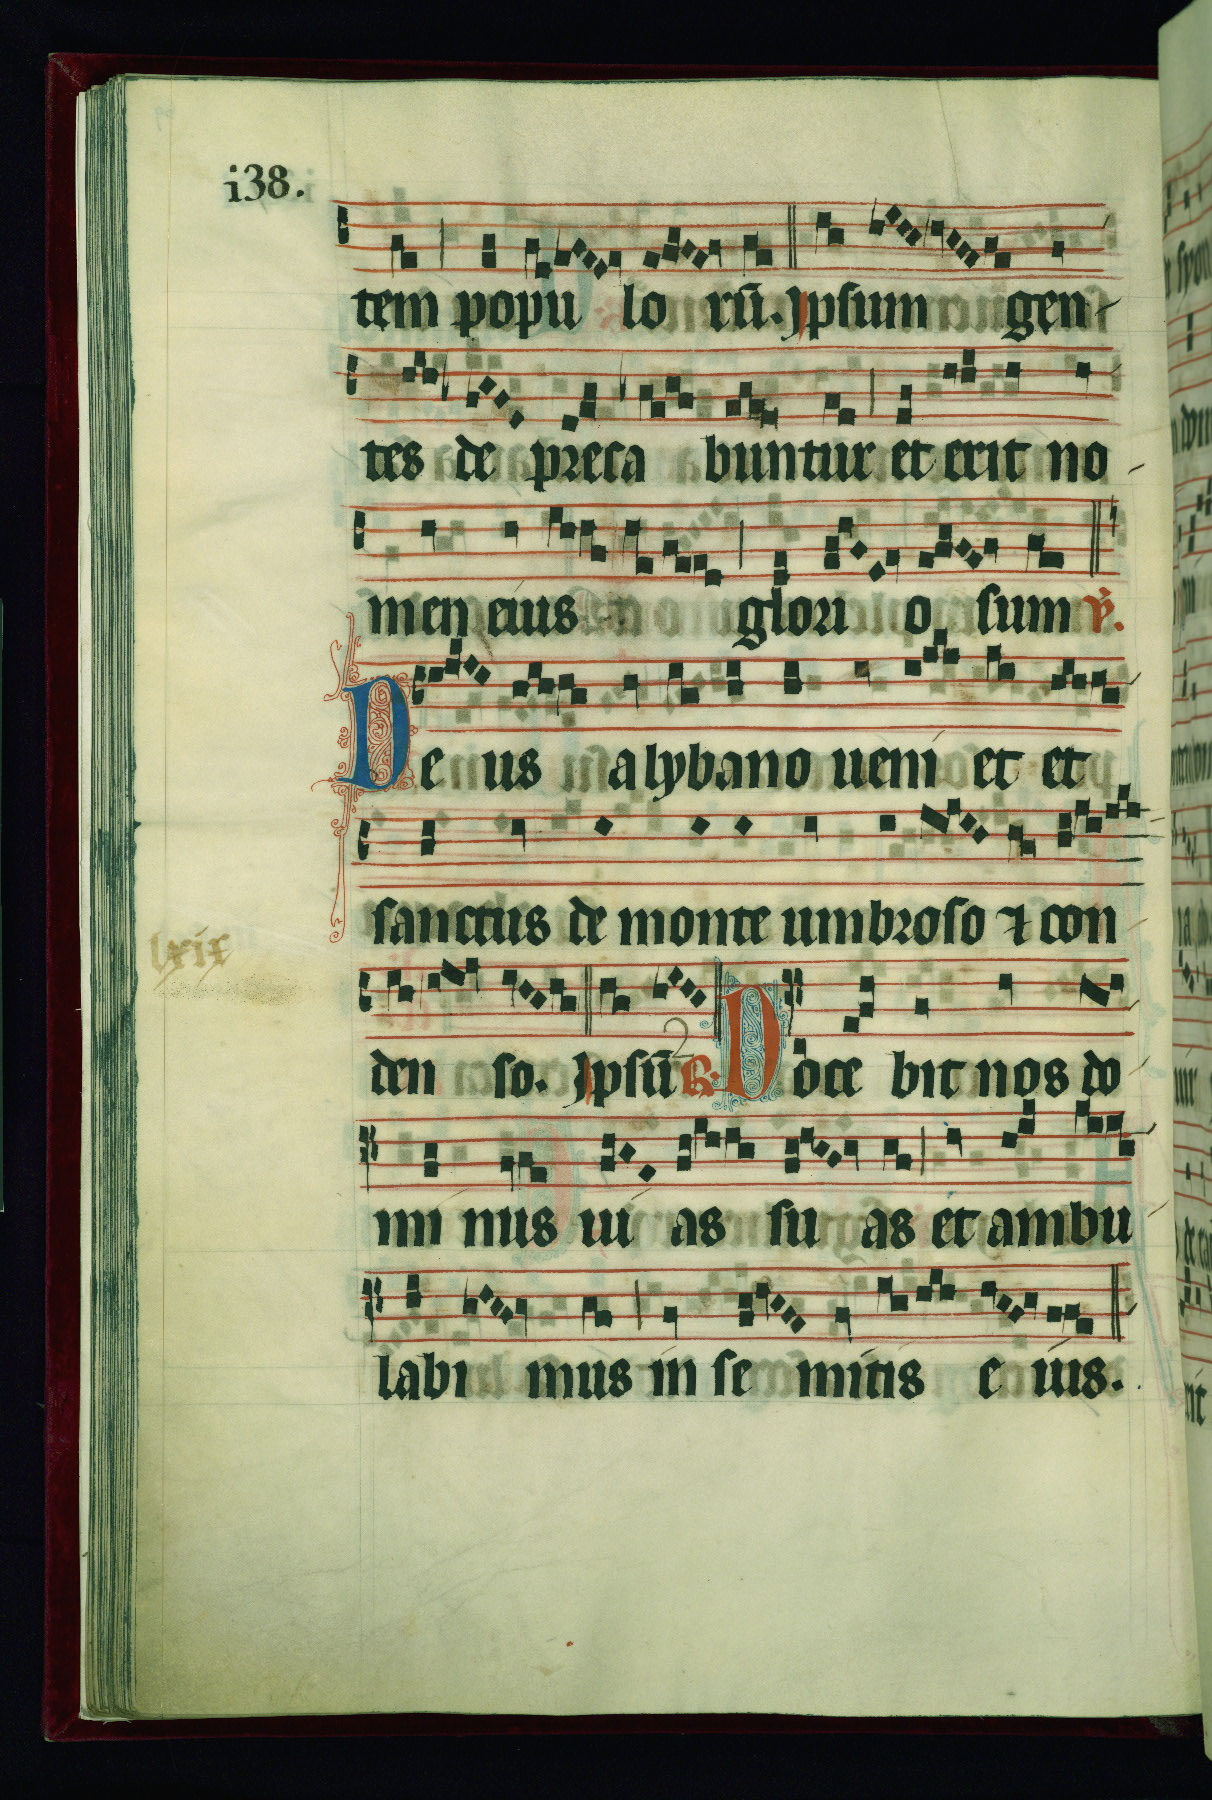 i38.
tem popu lo rū. Ipsum gen-
tes de preca buntur et erit no
men eius glori o sum v̄.
De us a lybano ueni et et
sanctus de monte umbroso ⁊ con
lxix
den so. Ipsū 2 R. Doce bit nos do
mi nus ui as su as et ambu
labi mus in se mitis e ius.